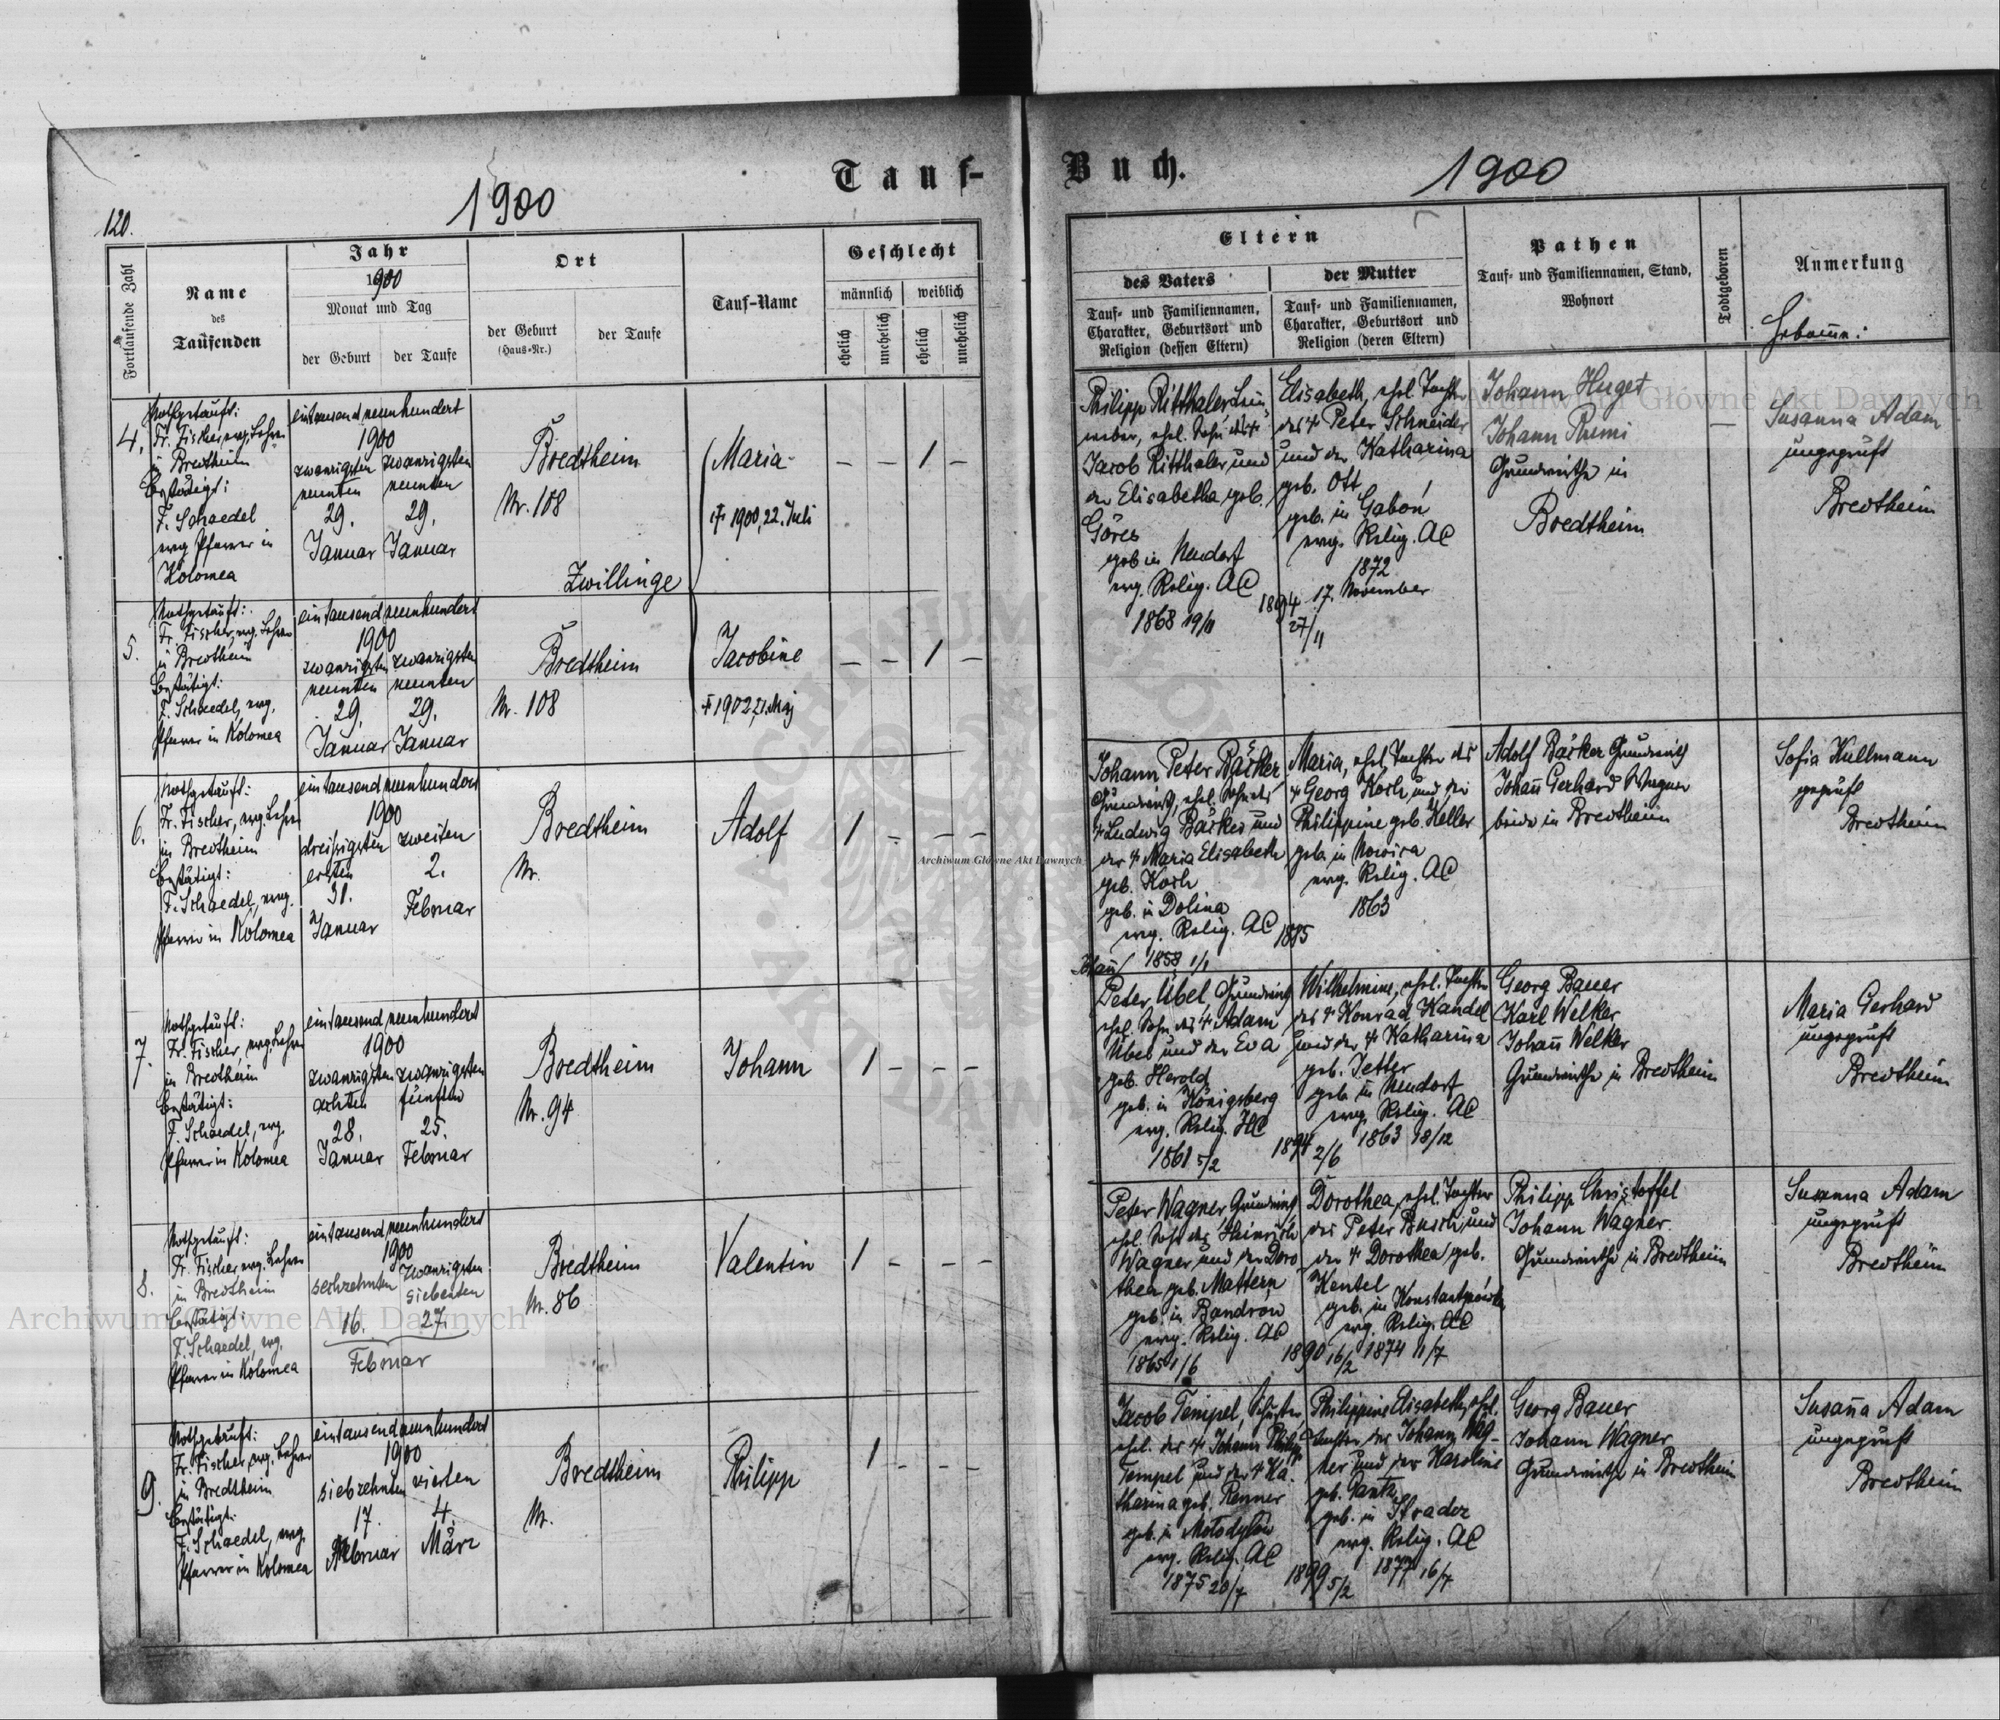 Tauf-
Buch.
1900
1900
120.
Fortlaufende Zahl
Name
des
Taufenden
Jahr
1900
Monat und Tag
der Geburt
der Taufe
Ort
der Geburt
(Haus-Nr.)
der Taufe
Tauf-Name
Geschlecht
männlich
weiblich
ehelich
unehelich
ehelich
unehelich
Eltern
des Vaters
Tauf- und Familiennamen,
Charakter, Geburtsort und
Religion (dessen Eltern)
der Mutter
Tauf- und Familiennamen,
Charakter, Geburtsort und
Religion (deren Eltern)
Pathen
Tauf- und Familiennamen, Stand,
Wohnort
Todtgeboren
Anmerkung
4.
Nothgetauft:
Fr. Fischer, evg. Lehrer
in Bredtheim
Bestätigt:
F. Schaedel
evg. Pfarrer in
Kolomea
eintausend neunhundert
1900
zwanzigsten zwanzigsten
neunten neunten
29. 29.
Januar Januar
Bredtheim
Nr. 108
Maria
† 1900, 22. Juli
– – 1 –
Zwillinge
Philipp Ritthaler, Lein
weber, ehel. Sohn des †
Jacob Ritthaler und
der Elisabetha geb.
Göres
geb. in Neudorf
evg. Relig. AC
1868 19/11
Elisabeth, ehel. Tochter
des † Peter Schneider
und der Katharina
geb. Ott
geb. in Gabon
evg. Relig. AC
1872
17. November
1894
27/11
Johann Huget
Johann Rumi
Grundwirthe in
Bredtheim
–
Susanna Adam
ungeprüft
Bredtheim
5.
Nothgetauft:
Fr. Fischer, evg. Lehrer
in Bredtheim
Bestätigt:
F. Schaedel, evg.
Pfarrer in Kolomea
eintausend neunhundert
1900
zwanzigsten zwanzigsten
neunten neunten
29. 29.
Januar Januar
Bredtheim
Nr. 108
Jacobine
† 1902, 21. Maj
– – 1 –
6.
Nothgetauft:
Fr. Fischer, evg. Lehrer
in Bredtheim
Bestätigt:
F. Schaedel, evg.
Pfarrer in Kolomea
eintausend neunhundert
1900
dreissigsten zweiten
ersten 2.
31.
Januar Februar
Bredtheim
Nr.
Adolf
1 – – –
Johann Peter Bäcker
Grundwirth, ehel. Sohn des
† Ludwig Bäcker und
der † Maria Elisabeth
geb. Koch
geb. in Dolina
evg. Relig. AC
1858 1/1
Maria, ehel. Tochter des
† Georg Koch und der
Philippine geb. Keller
geb. in Nowica
evg. Relig. AC
1863
1885
Adolf Bäcker Grundwirth
Johann Gerhard Wagner
beide in Bredtheim
Sofia Kullmann
geprüft
Bredtheim
7.
Nothgetauft:
Fr. Fischer, evg. Lehrer
in Bredtheim
Bestätigt:
F. Schaedel, evg.
Pfarrer in Kolomea
eintausend neunhundert
1900
zwanzigsten zwanzigsten
achten fünften
28. 25.
Januar Februar
Bredtheim
Nr. 94
Johann
1 – – –
Johann
Peter Übel, Grundwirth
ehel. Sohn des † Adam
Übel und der Eva
geb. Herold
geb. in Königsberg
evg. Relig. HC
1861 5/2
Wilhelmine, ehel. Tochter
des † Konrad Kandel
und der † Katharina
geb. Jetter
geb. in Neudorf
evg. Relig. AC
1863 18/12
1894 2/6
Georg Bauer
Karl Welker
Johann Welker
Grundwirthe in Bredtheim
Maria Gerhard
ungeprüft
Bredtheim
8.
Nothgetauft:
Fr. Fischer evg. Lehrer
in Bredtheim
Bestätigt:
F. Schaedel, evg.
Pfarrer in Kolomea
eintausend neunhundert
1900
sechzehnten zwanzigsten
siebenten
16. 27.
Februar
Bredtheim
Nr. 86
Valentin
1 – – –
Peter Wagner, Grundwirth
ehel. Sohn des Heinrich
Wagner und der Doro
thea geb. Mattern
geb. in Bandrów
evg. Relig. AC
1865 1/6
Dorothea, ehel. Tochter
des Peter Busch und
der † Dorothea geb.
Hentel
geb. in Konstantynówka
evg. Relig. AC
1890 16/2 1874 11/7
Philipp Christoffel
Johann Wagner
Grundwirthe in Bredtheim
Susanna Adam
ungeprüft
Bredtheim
9.
Nothgetauft:
Fr. Fischer, evg. Lehrer
in Bredtheim
Bestätigt:
F. Schaedel, evg.
Pfarrer in Kolomea
eintausend neunhundert
1900
siebzehnten vierten
17. 4.
Februar März
Bredtheim
Nr.
Philipp
1 – – –
Jacob Tempel, Schuster
ehel. des † Johann Philipp
Tempel und der † Ka-
tharina geb. Renner
geb. in Molodylów
evg. Relig. AC
1875 20/7
Philippine Elisabeth, ehel.
Tochter des Johann Wag-
ner und der Karoline
geb. Gantz
geb. in Stradcz
evg. Relig. AC
1899 5/2 1877 16/7
Georg Bauer
Johann Wagner
Grundwirthe in Bredtheim
Susanna Adam
ungeprüft
Bredtheim
Archiwum Główne Akt Dawnych
Archiwum Główne Akt Dawnych
Archiwum Główne Akt Dawnych